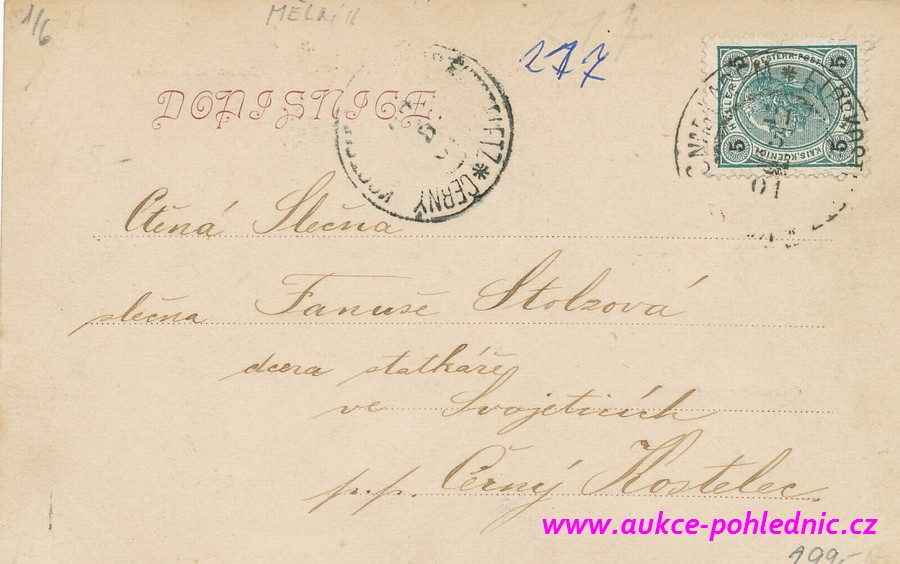 1/6
MĚLNÍK
277
DOPISNICE.
5 OESTERR. POST 5
5 KAIS. KOENIGL 5
KOSTELETZ * ČERNÝ
01
Ctěná Slečna
slečna Fanuše Stolzová
dcera statkáře
ve Svojeticích
p.p. Černý Kostelec.
www.aukce-pohlednic.cz
199,-